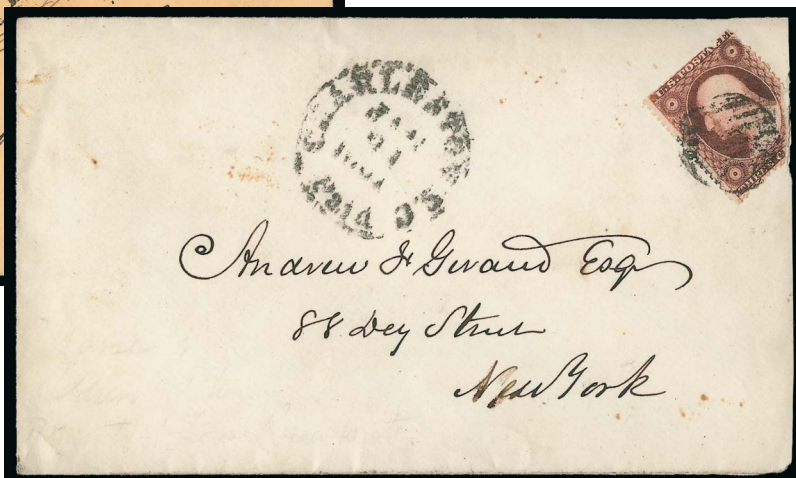 CHARLESTON S.C.
JAN
Paid
U.S. POSTAGE
Andrew J. Giraud Esq
88 Dey Street
New York